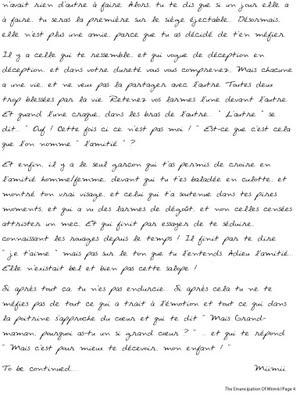 n'avait rien d'autre à faire. Alors, tu te dis que si un jour elle a
à faire, tu seras la première sur le siège éjectable. Désormais,
elle n'est plus une amie, parce que tu as décidé de t'en méfier.
Il y a celle qui te ressemble, et qui vogue de déception en
déception, et dans votre dureté vous vous comprenez. Mais chacune
a une vie, et ne veux pas la partager avec l'autre. Toutes deux
trop blessées par la vie. Retenez vos larmes l'une devant l'autre.
Et quand l'une craque, dans les bras de l'autre... " L'autre " se
dit... " Ouf ! Cette fois ci ce n'est pas moi ! " Est-ce que c'est cela
que l'on nomme " l'amitié " ?
Et enfin, il y a le seul garçon qui t'as permis de croire en
l'amitié homme/femme, devant qui tu t'es baladée en culotte, et
montré ton vrai visage, et celui qui t'a soutenue dans tes pires
moments, et qui a vu des larmes de dégoût, et non celles censées
attrister un mec. Et qui finit par essayer de te séduire,
connaissant les ravages depuis le temps ! Il finit par te dire
" je t'aime " mais pas sur le ton que tu l'entends. Adieu l'amitié...
Elle n'existait bel et bien pas cette salope !
Si après tout ça, tu n'es pas endurcie... Si après cela tu ne te
méfies pas de tout ce qui a trait à l'émotion et tout ce qui dans
la poitrine s'approche du cœur et qui te dit " Mais Grand-
maman, pourquoi as-tu un si grand cœur ? "... et qui te répond
" Mais c'est pour mieux te décevoir, mon enfant ! "
To be continued... Miimii
The Emancipation Of Miimii / Page 4